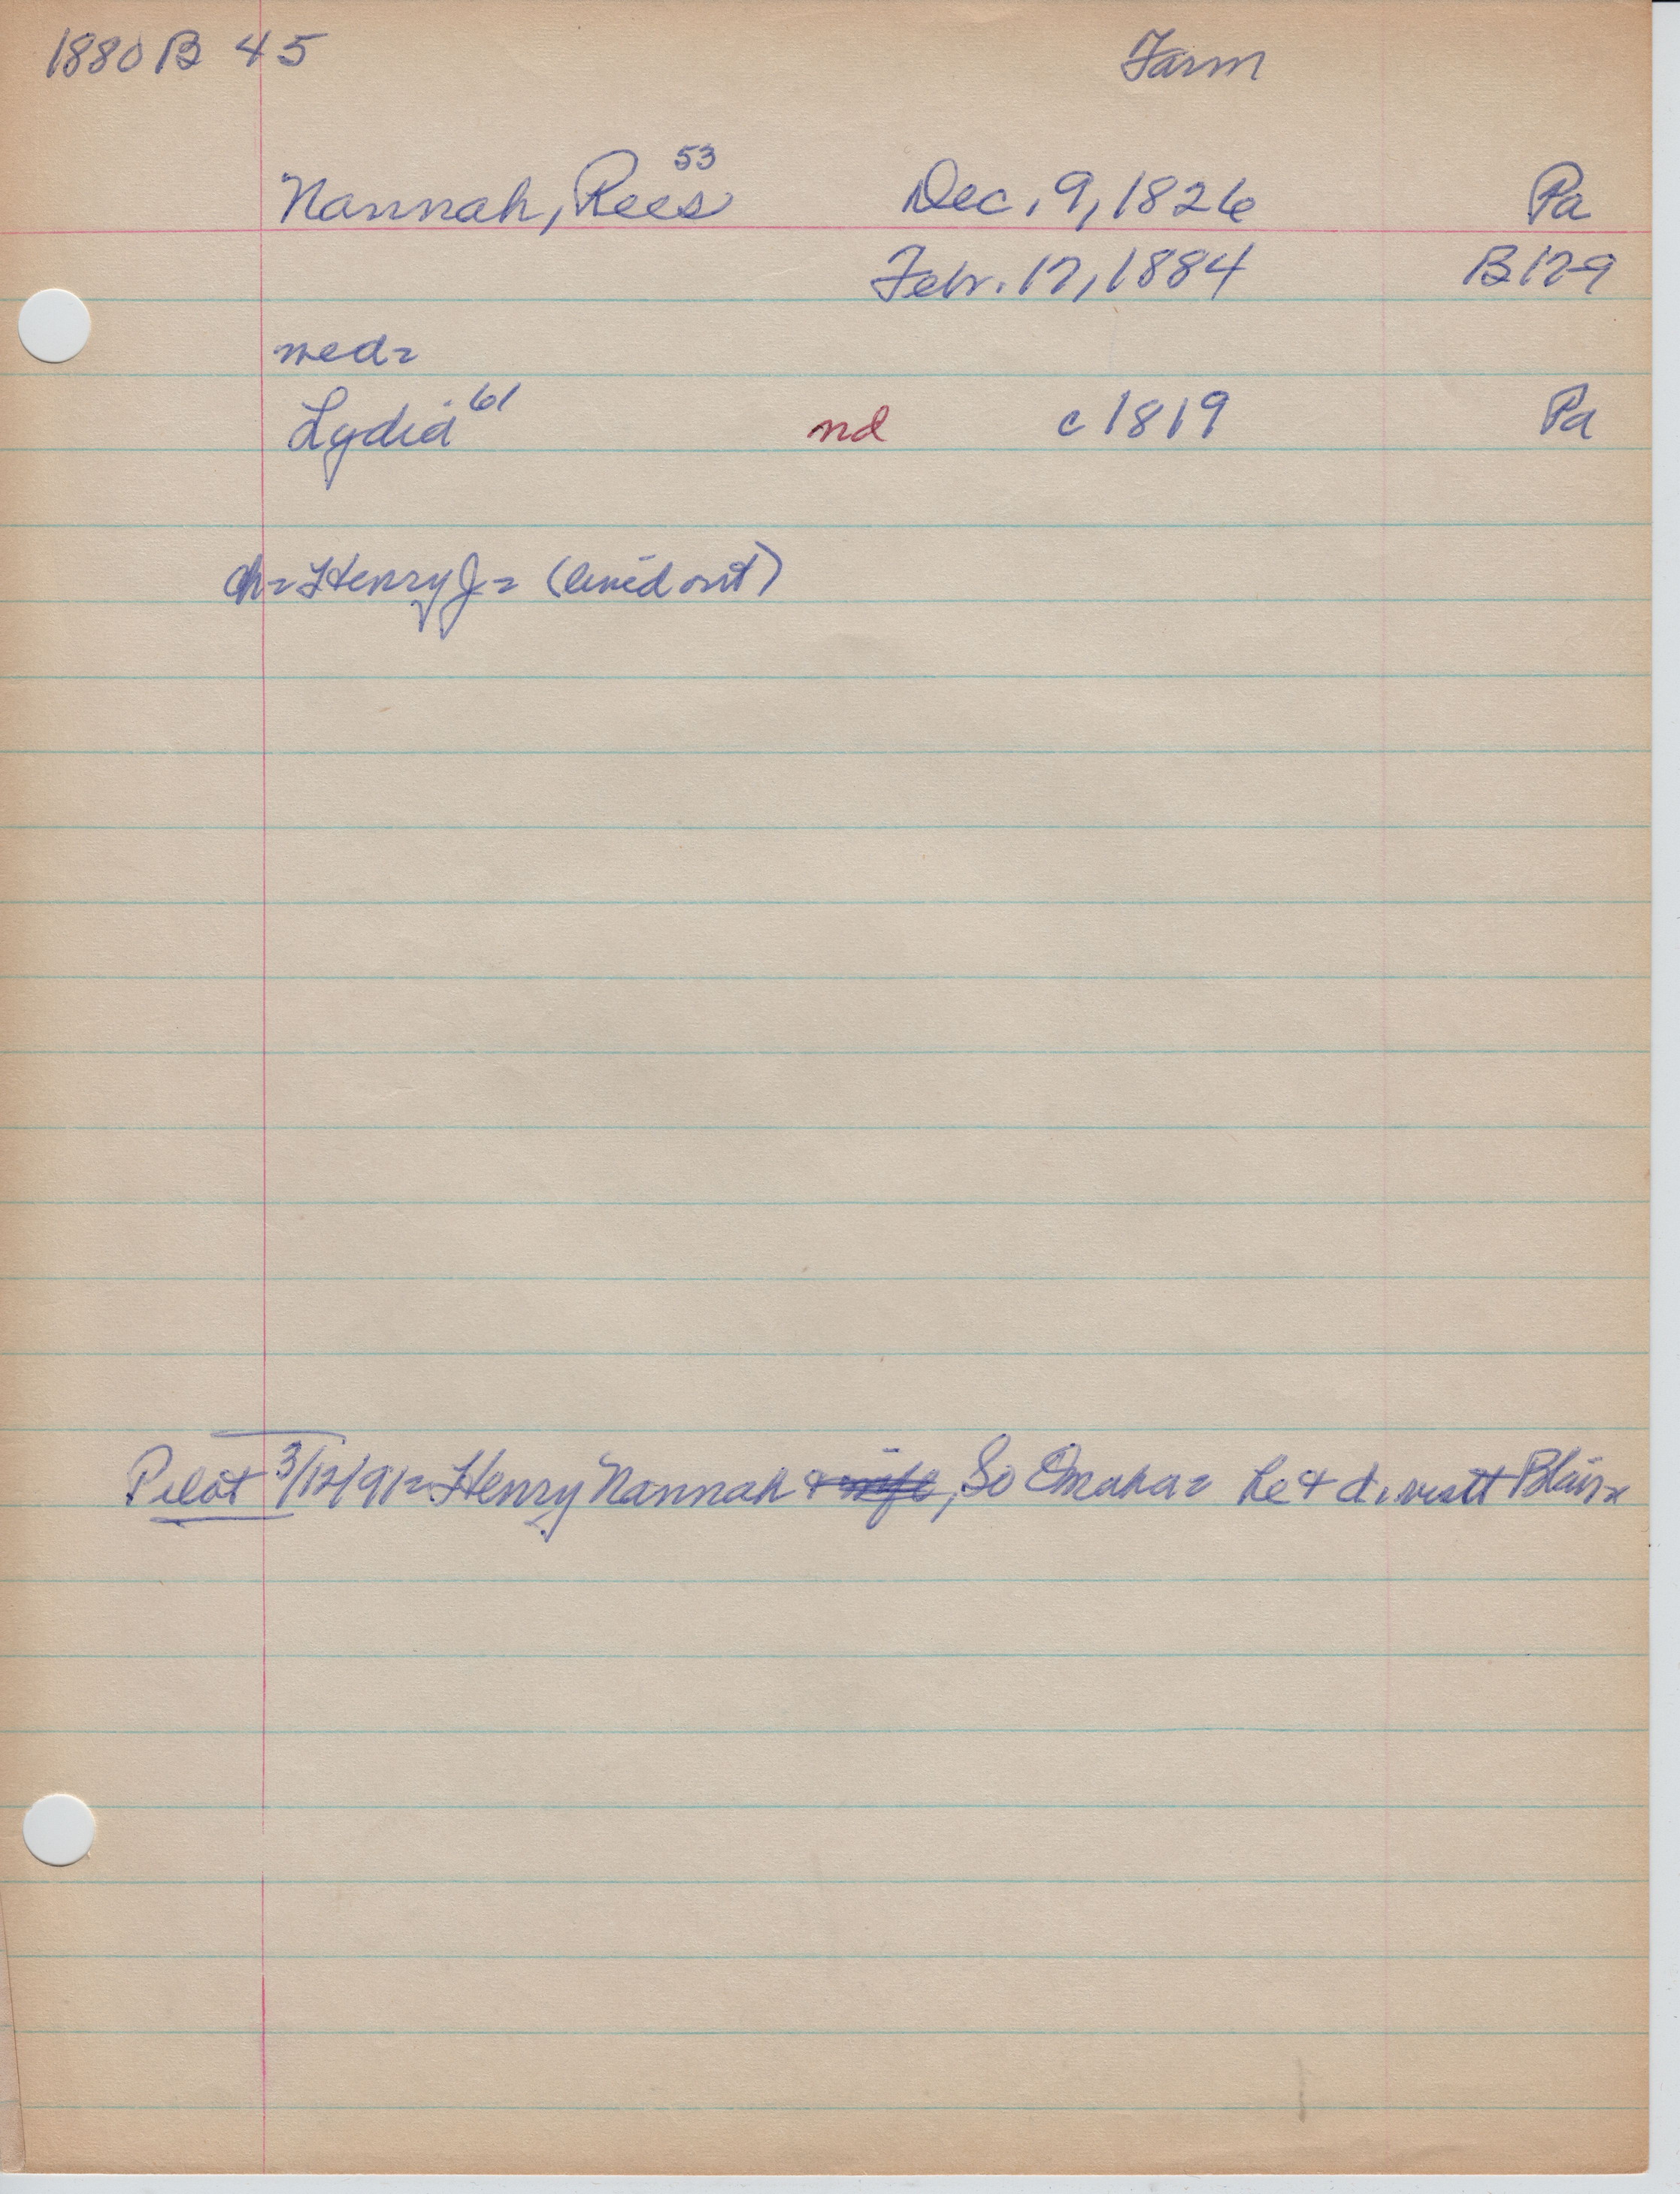 1880 B 45 Farm
Nannah, Rees 53 Dec. 9, 1826 Pa
Febr. 17, 1884 B 179
wed=
Lydia 61 nd c 1819 Pa
ch= Henry J= (lined out)
Pilot 3/12/91= Henry Nannah & wife, So Omaha= he & d. visit Blair=